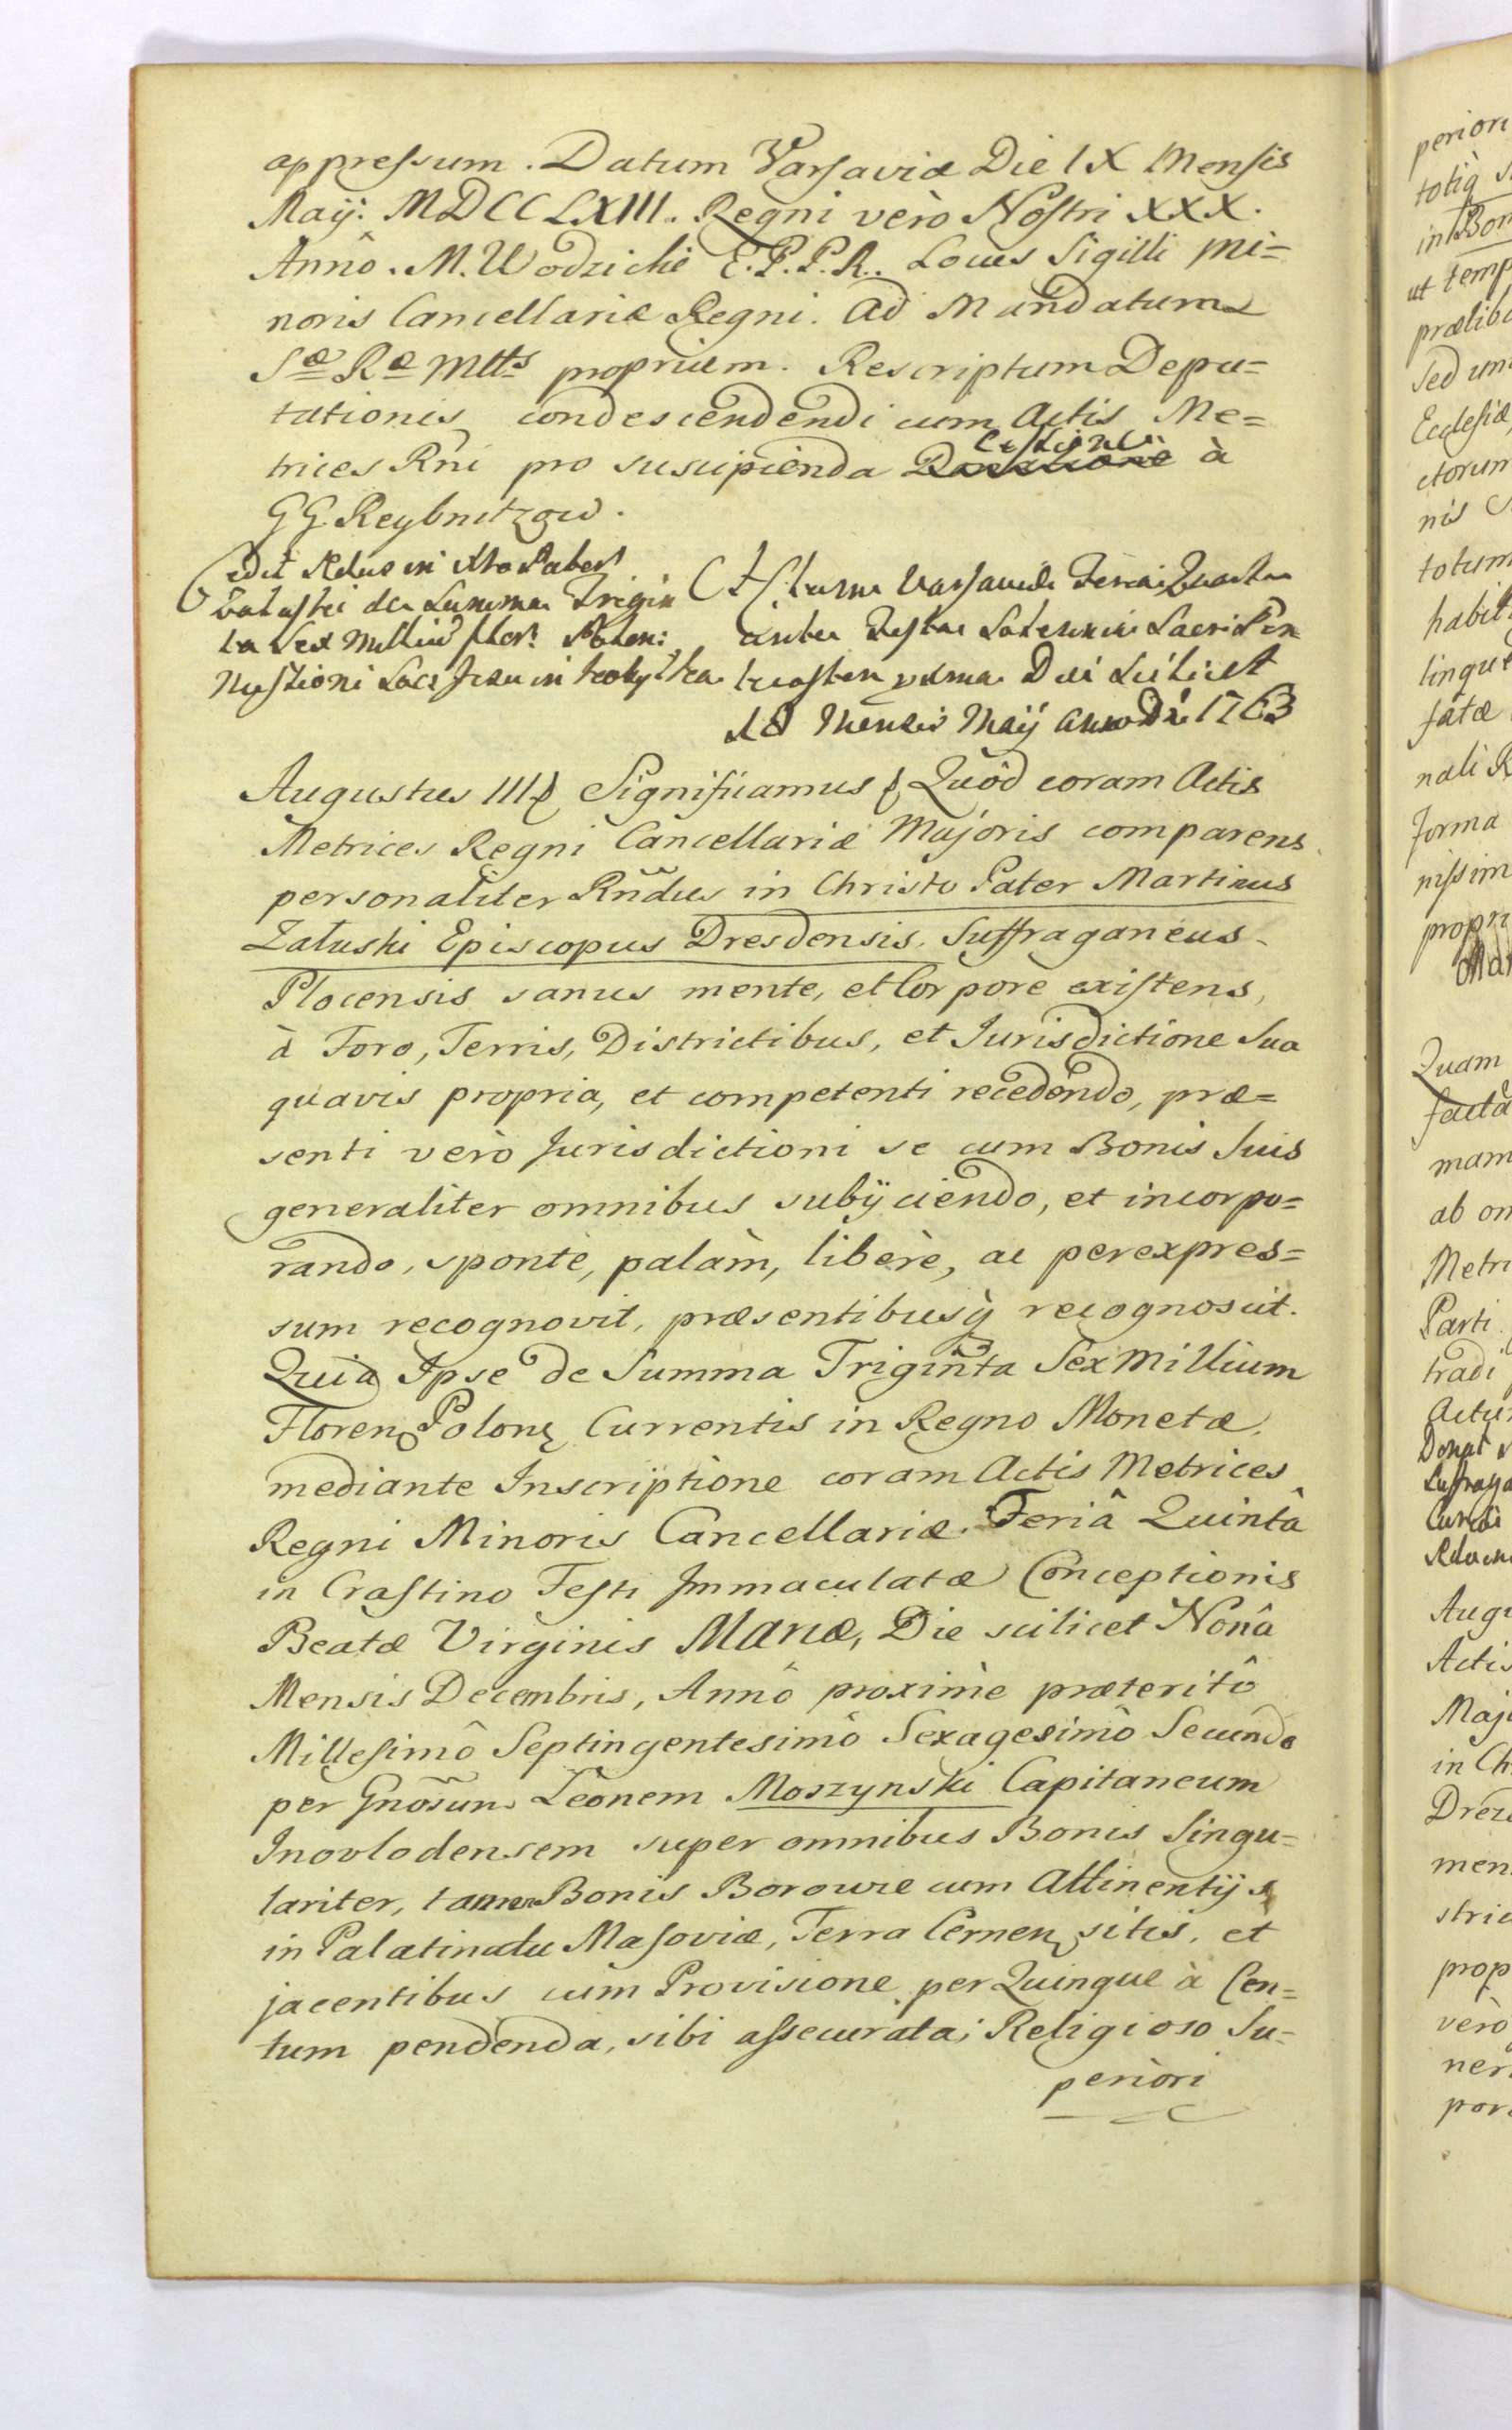 appressum. Datum Varsaviæ Die IX Mensis
Maÿ. MDCCLXIII. Regni verò Nostri XXX.
Annô. M. Wodzicki E.P.P.R. Locus Sigilli Mi=
noris Cancellariæ Regni. Ad Mandatum
Sæ Ræ Mttis proprium. Rescriptum Depu=
tationis condescendendi cum Actis Me=
trices Rni pro suscipienda Cessione à
GG Reybnitzow.
Cedit Rdus in Xto Pater
Załuski de Summa Trigin
ta Sex Millium flor: Polon:
Missioni Soc Jesu in
Actum Varsaviæ Feria Quarta
ante Festa Solennia Sacri Pen
tecostes Die Scilicet
18 Mensis Maÿ Anno Dni 1763
Augustus III Significamus Quôd coram Actis
Metrices Regni Cancellariæ Majoris comparens
personaliter Rndus in Christo Pater Martinus
Załuski Episcopus Dresdensis, Suffraganeus
Plocensis sanus mente, et Corpore existens,
à Foro, Terris, Districtibus, et Jurisdictione Sua
quavis propria, et competenti recedendo, præ=
senti verò Jurisdictioni se cum Bonis Suis
generaliter omnibus subÿciendo, et incorpo=
rando, spontè, palàm, liberè, ac per expres=
sum recognovit, præsentibusq; recognoscit.
Quia Ipse de Summa Triginta Sex Millium
Floren Polon Currentis in Regno Monetæ,
mediante Inscriptione coram Actis Metrices
Regni Minoris Cancellariæ. Feriâ Quintâ
in Crastino Festi Immaculatæ Conceptionis
Beatæ Virginis Mariæ, Die scilicet Nonâ
Mensis Decembris, Annô proximè præteritô
Millesimô Septingentesimô Sexagesimô Secundo
per Gnosum Leonem Moszynski Capitaneum
Inovlodensem super omnibus Bonis Singu=
lariter, tamen Bonis Borowie cum Attinentÿs
in Palatinatu Masoviæ, Terra Cernen sitis, et
jacentibus cum Provisione per Quinque à Cen=
tum pendenda, sibi assecurata; Religioso Su=
periori